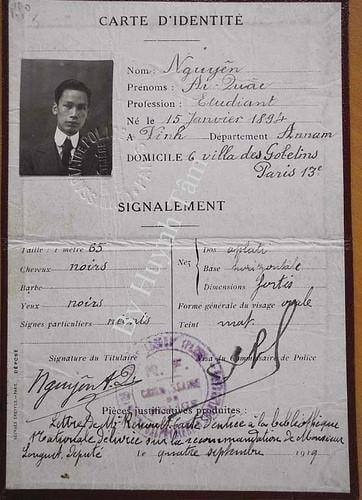 CARTE D'IDENTITÉ
Nom: Nguyễn
Prénoms: Ái-Quấc
Profession: Etudiant
Né le 15 Janvier 1894
A Vinh Département Annam
DOMICILE 6 villa des Gobelins
Paris 13e
SIGNALEMENT
Taille: 1 mètre 65
Cheveux noirs
Barbe
Yeux noirs
Signes particuliers néants
Nez
Dos aplati
Base horizontale
Dimensions fortes
Forme générale du visage ovale
Teint mat
Signature du Titulaire
Visa du Commissaire de Police
Nguyễn A. Q
Pièces justificatives produites:
Lettre de Mr Renout. Carte d'entrée à la bibliothèque
Nationale délivrée sur la recommandation de Monsieur
Longuet, député
le quatre septembre 1919
By Huỳnh Tâm